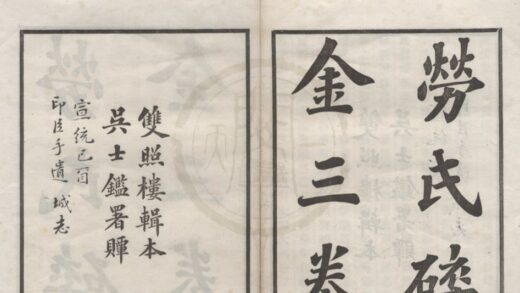 勞氏碎
金三卷
雙照樓輯本
吳士鑑署耑
宣統己酉
印臣手遺 城志